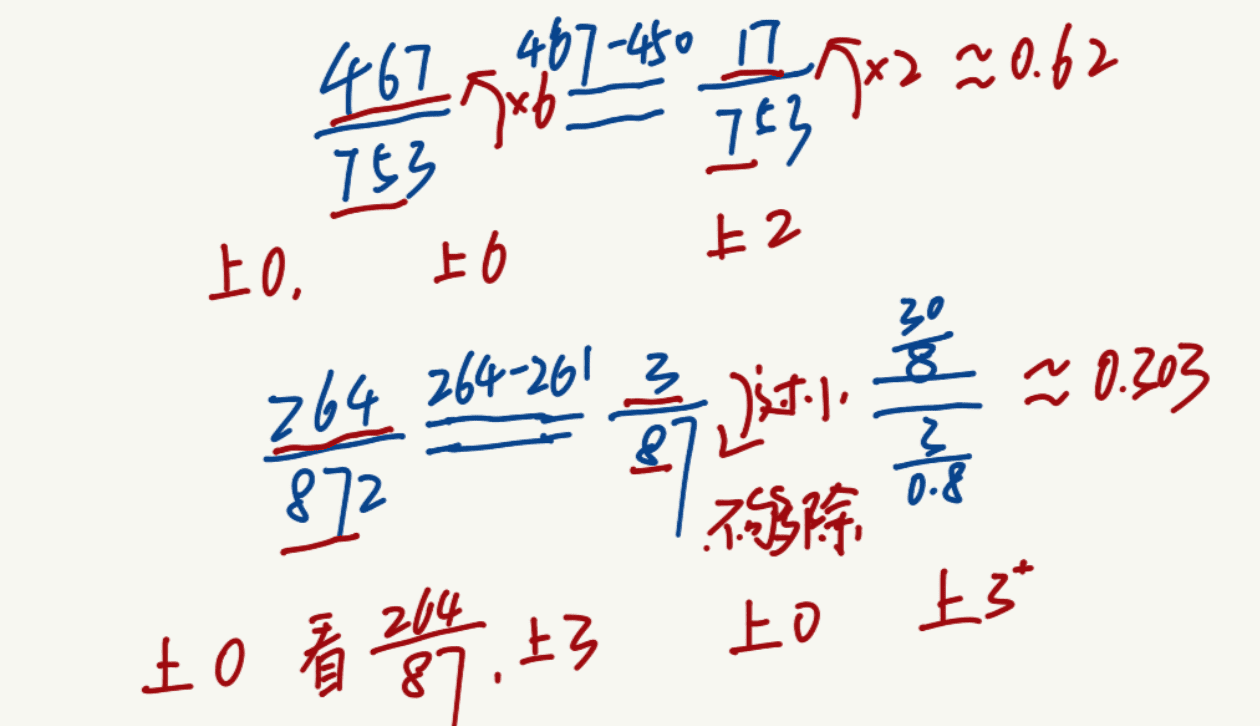 467/753 ×6 467-450 17/753 ×2 ≈0.62
上0. 上6 上2
264/872 264-261 3/87 过小, 不够除, 30/8 3/0.8 ≈0.303
上0 看 264/87. 上3 上0 上3⁺